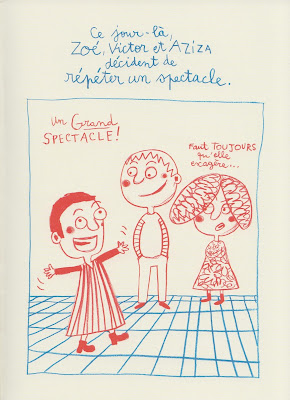 Ce jour-là,
Zoé, Victor et AZiZA
décident de
répéter un spectacle.
UN GRAND
SPECTACLE!
Faut TOUJOURS
qu'elle
exagère...